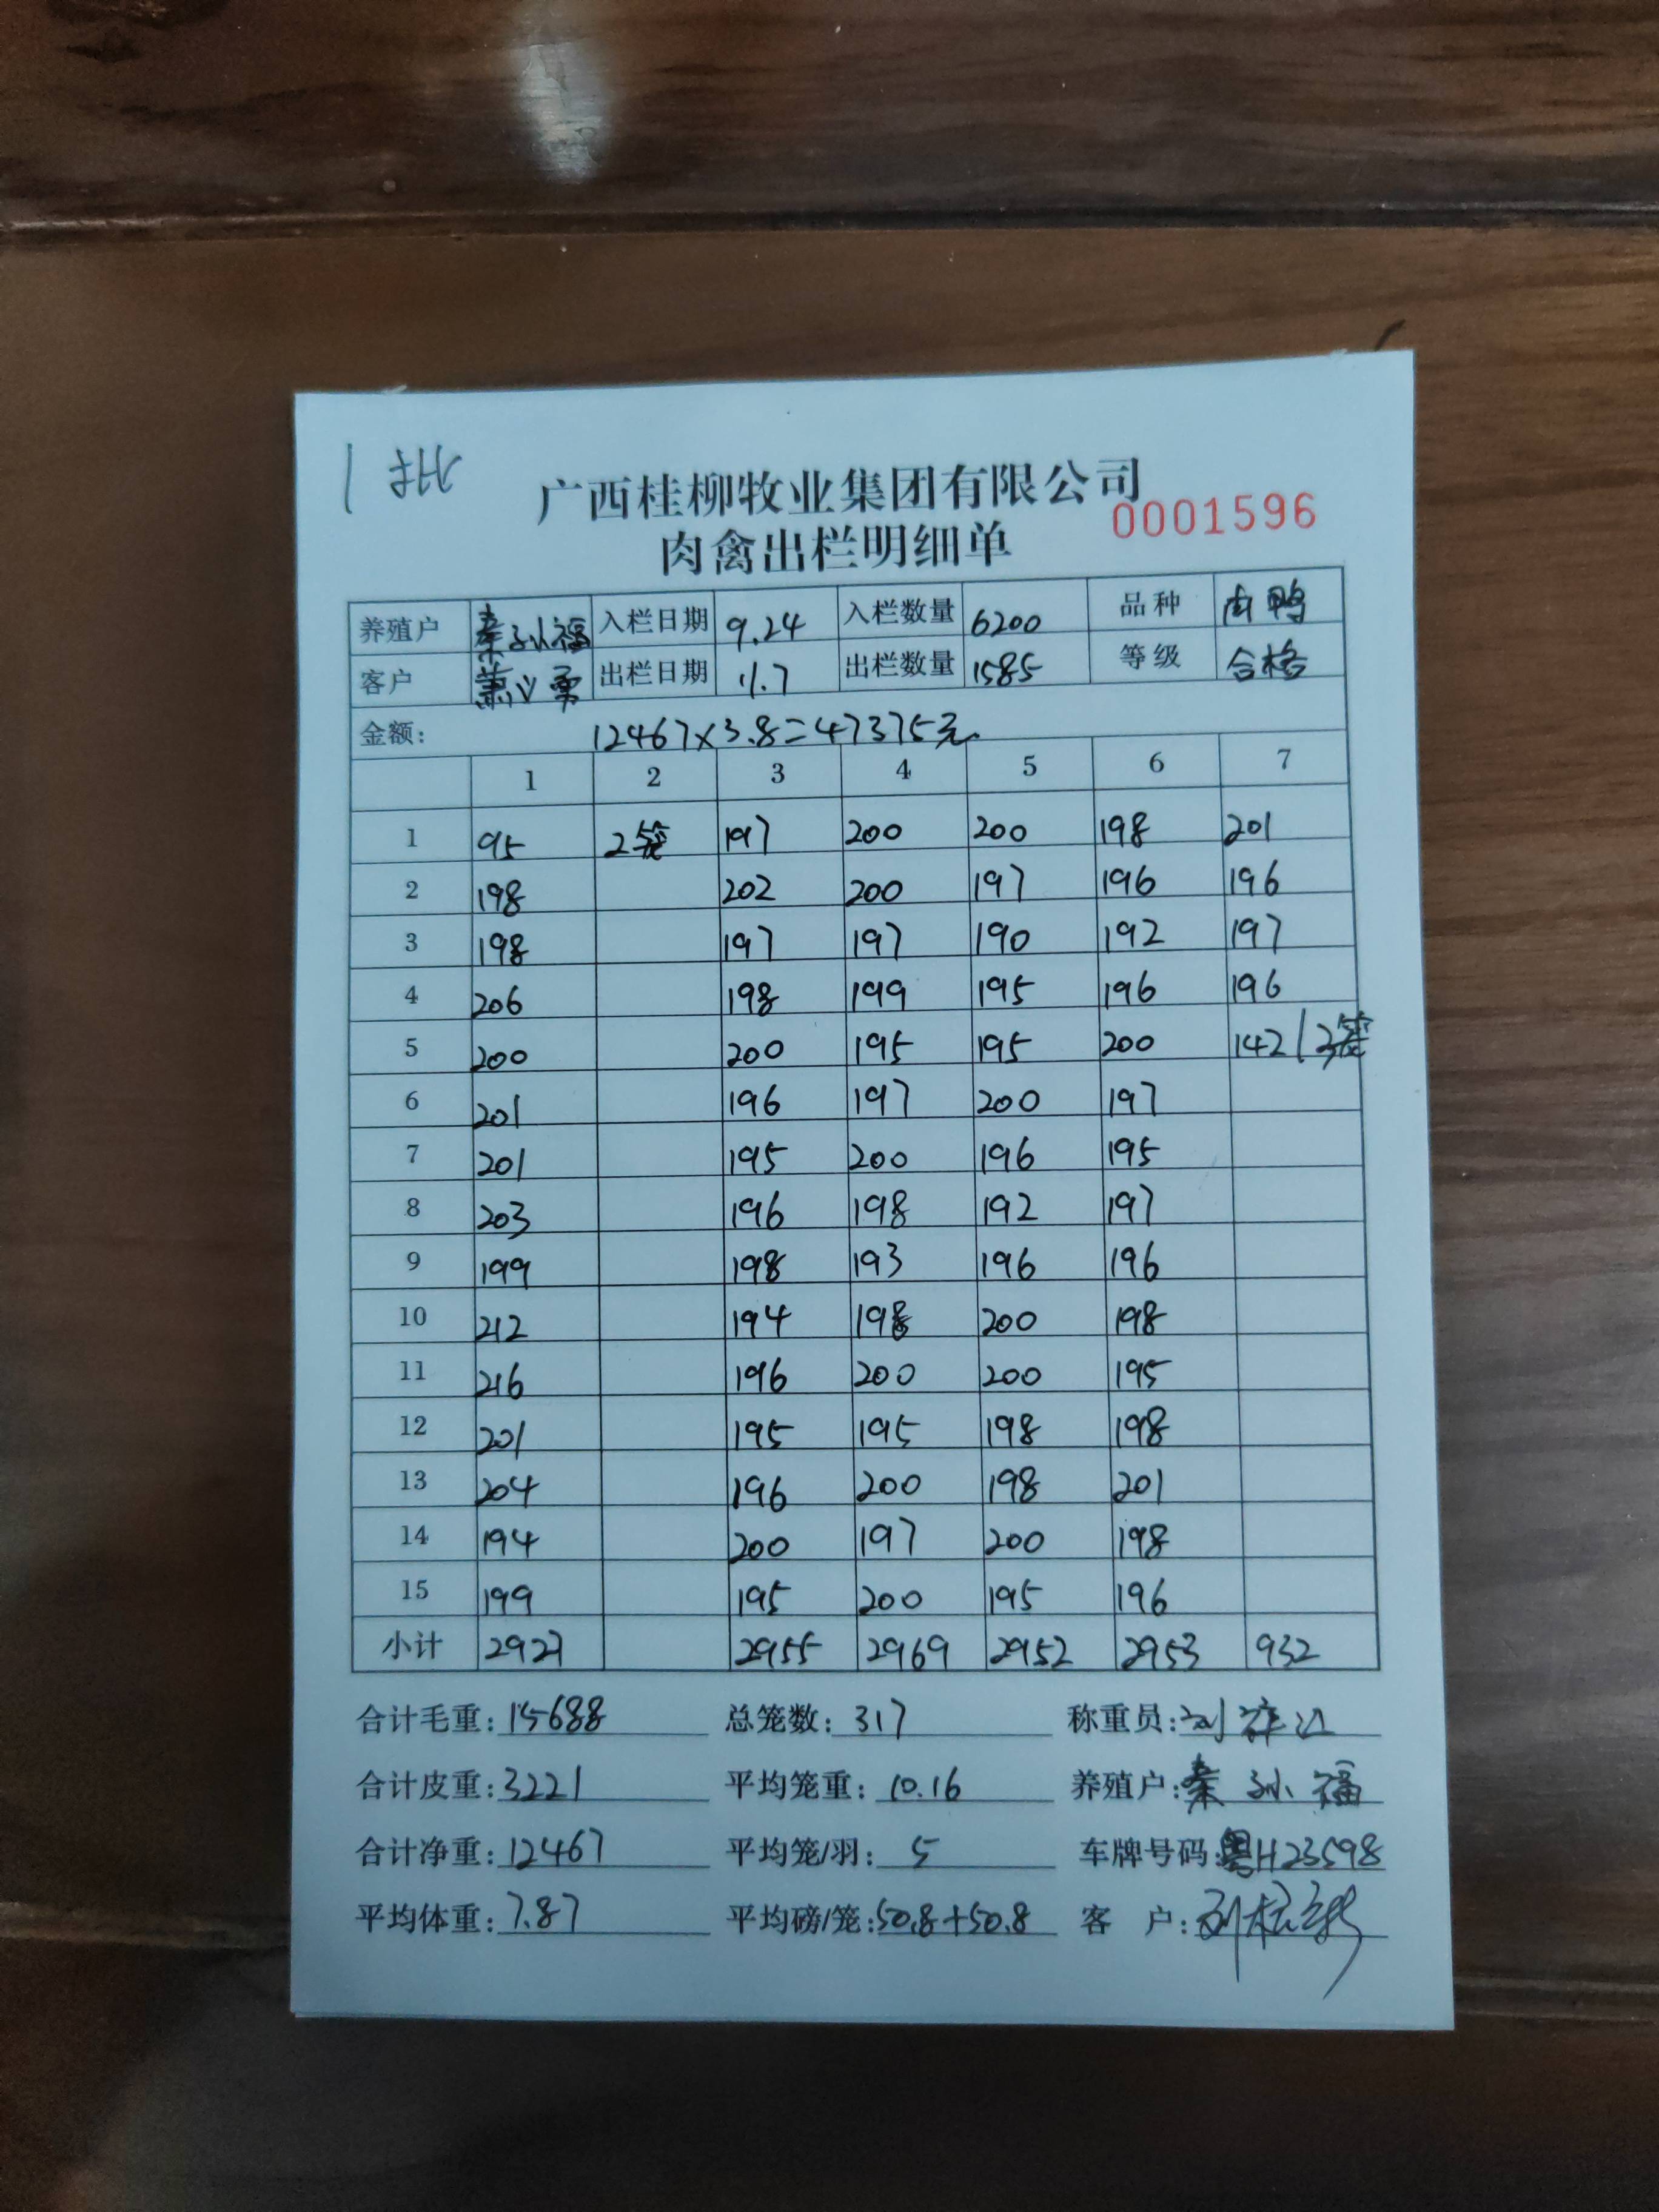 1 批
广西桂柳牧业集团有限公司
0001596
肉禽出栏明细单
养殖户 秦孙福 入栏日期 9.24 入栏数量 6200 品种 肉鸭
客户 萧义勇 出栏日期 11.7 出栏数量 1585 等级 合格
金额: 12467×3.8=47375元
1 2 3 4 5 6 7
1 95 2笼 197 200 200 198 201
2 198 202 200 197 196 196
3 198 197 197 190 192 197
4 206 198 199 195 196 196
5 200 200 195 195 200 142/3笼
6 201 196 197 200 197
7 201 195 200 196 195
8 203 196 198 192 197
9 199 198 193 196 196
10 212 194 198 200 198
11 216 196 200 200 195
12 201 195 195 198 198
13 204 196 200 198 201
14 194 200 197 200 198
15 199 195 200 195 196
小计 2927 2955 2969 2952 2953 932
合计毛重: 15688 总笼数: 317 称重员: 刘
合计皮重: 3221 平均笼重: 10.16 养殖户: 秦孙福
合计净重: 12467 平均笼/羽: 5 车牌号码: 粤H23598
平均体重: 7.87 平均磅/笼: 50.8+50.8 客 户: